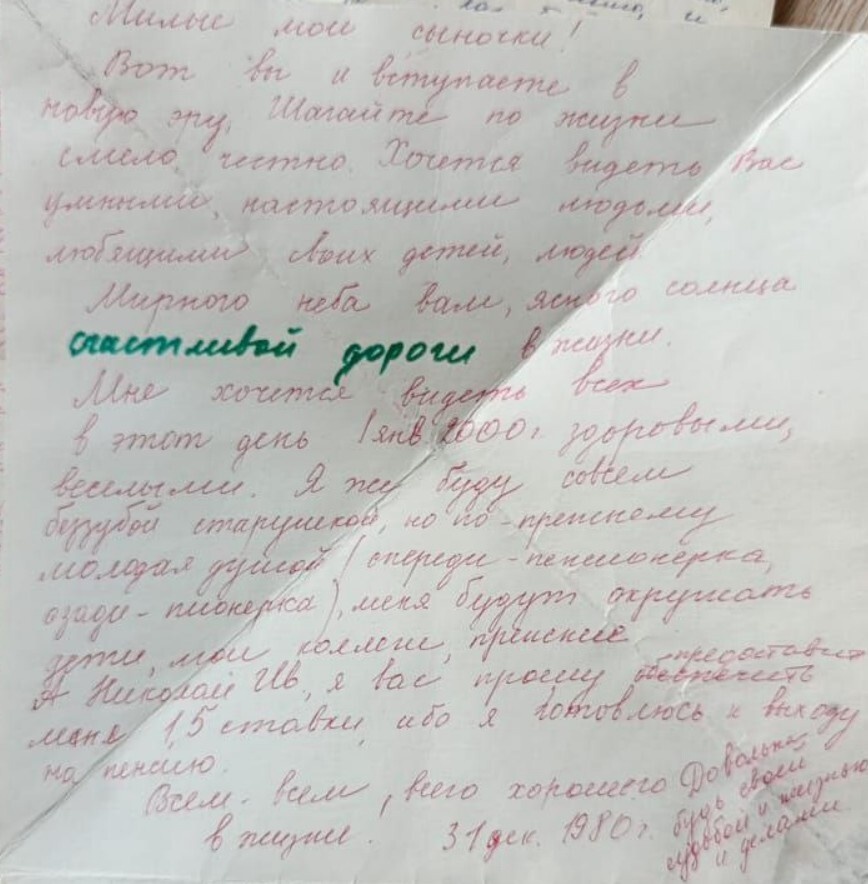 Милые мои сыночки!
Вот вы и вступаете в
новую эру. Шагайте по жизни
смело, честно. Хочется видеть Вас
умными настоящими людьми,
любящими своих детей, людей.
Мирного неба вам, ясного солнца
счастливой дороги в жизни.
Мне хочется видеть всех
в этот день 1 янв 2000 г. здоровыми,
веселыми. Я же буду совсем
беззубой старушкой, но по-прежнему
молодая душой (спереди - пенсионерка,
сзади - пионерка), меня будут окружать
дети, мои коллеги, прежние
А Николай Ив, я вас прошу обеспечить предоставит
меня 1,5 ставки, ибо я готовлюсь к выходу
на пенсию.
Всем - всем, всего хорошего
в жизни. 31 дек. 1980 г.
Довольна
будь своей
судьбой и жизнью
и делами